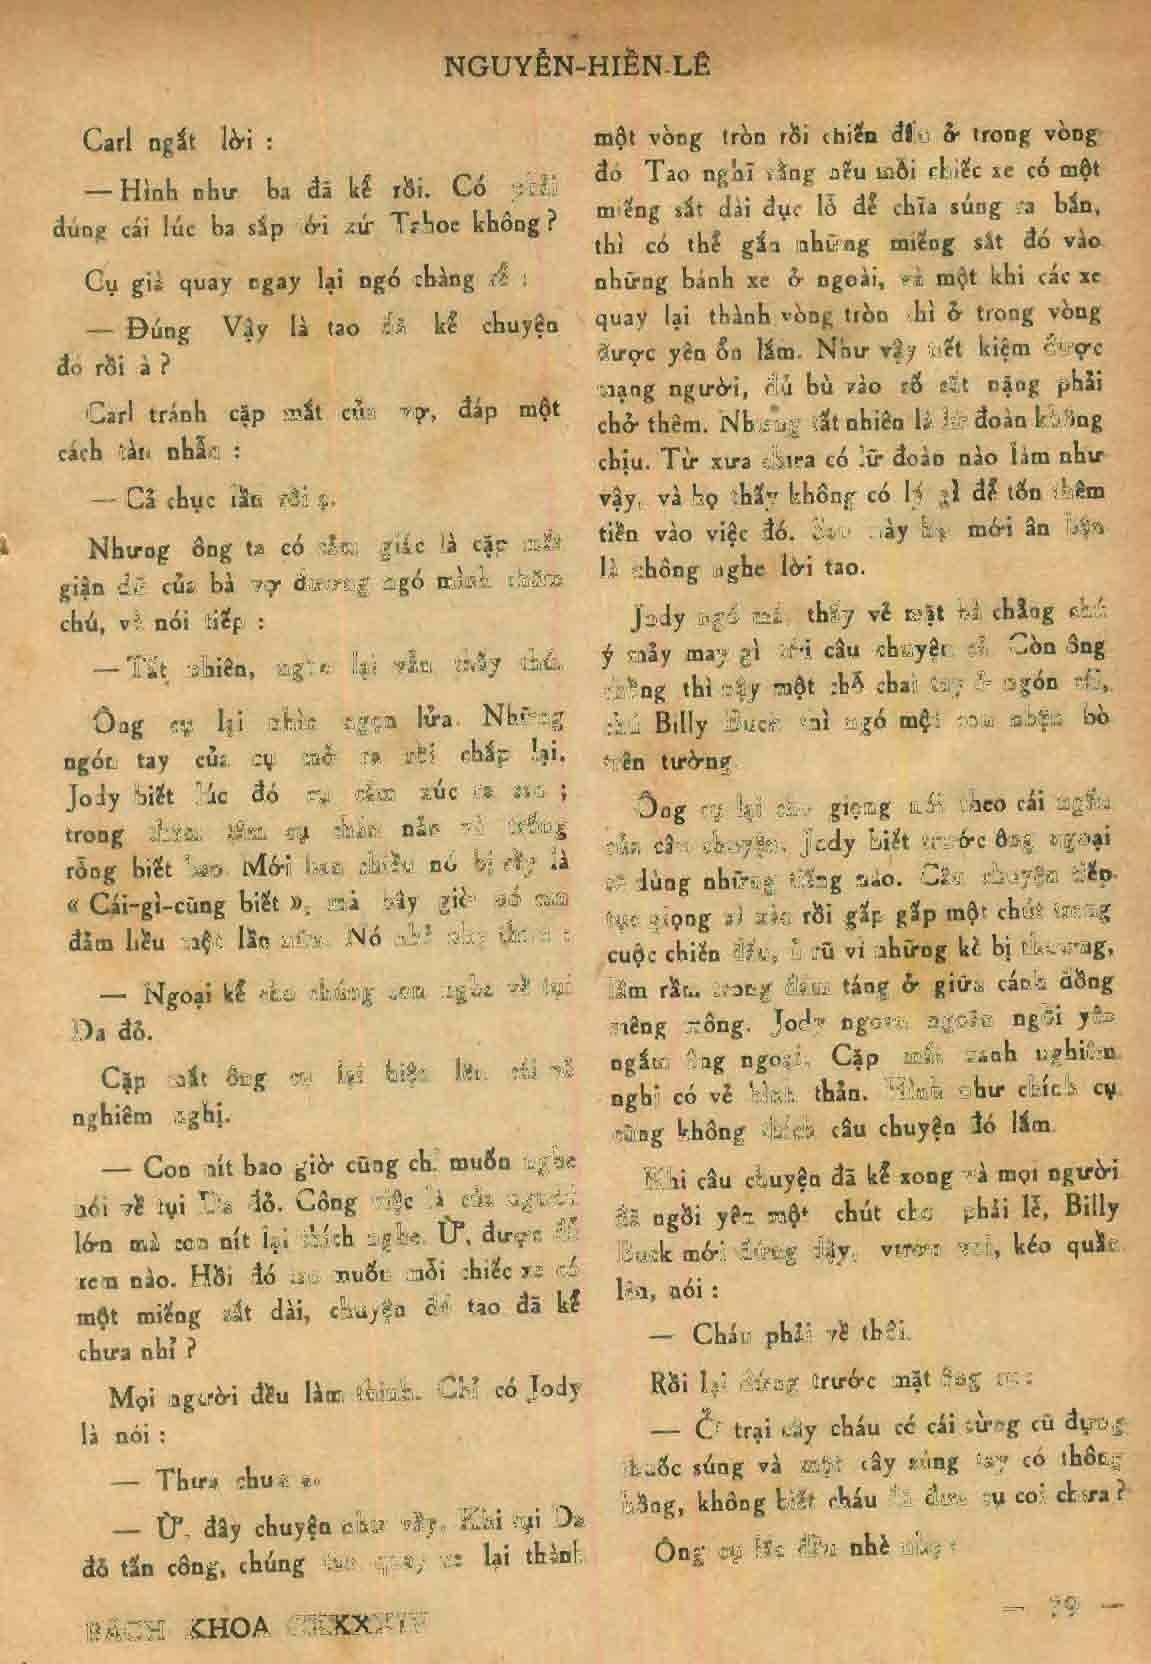 NGUYỄN-HIẾN-LÊ
Carl ngắt lời :
— Hình như ba đã kể rồi. Có phải
đúng cái lúc ba sắp tới xứ Tahoe không ?
Cụ già quay ngay lại ngó chàng rể :
— Đúng Vậy là tao đã kể chuyện
đó rồi à ?
Carl tránh cặp mắt của vợ, đáp một
cách tàn nhẫn :
— Cả chục lần rồi ạ.
Nhưng ông ta có cảm giác là cặp mắt
giận dữ của bà vợ đương ngó mình chăm
chú, và nói tiếp :
— Tất nhiên, nghe lại vẫn thấy thú.
Ông cụ lại nhìn ngọn lửa. Những
ngón tay của cụ mở ra rồi chắp lại.
Jody biết lúc đó cụ cảm xúc ra sao ;
trong thâm tâm cụ chán nản và trống
rỗng biết bao. Mới ban chiều nó bị rầy là
« Cái-gì-cũng biết », mà bây giờ nó
đảm liều một lần nữa. Nó nhỏ nhẹ thưa :
— Ngoại kể cho chúng con nghe về tụi
Da đỏ.
Cặp mắt ông cụ lại hiện lên cái vẻ
nghiêm nghị.
— Con nít bao giờ cũng chỉ muốn nghe
nói về tụi Da đỏ. Công việc là của người
lớn mà con nít lại thích nghe. Ừ, được để
xem nào. Hồi đó tao muốn mỗi chiếc xe có
một miếng sắt dài, chuyện đó tao đã kể
chưa nhỉ ?
Mọi người đều làm thinh. Chỉ có Jody
là nói :
— Thưa chưa ạ.
— Ừ, đây chuyện như vầy. Khi tụi Da
đỏ tấn công, chúng tao quay xe lại thành
một vòng tròn rồi chiến đấu ở trong vòng
đó Tao nghĩ rằng nếu mỗi chiếc xe có một
miếng sắt dài đục lỗ để chĩa súng ra bắn,
thì có thể gắn những miếng sắt đó vào
những bánh xe ở ngoài, và một khi các xe
quay lại thành vòng tròn thì ở trong vòng
được yên ổn lắm. Như vậy tiết kiệm được
mạng người, đủ bù vào số sắt nặng phải
chở thêm. Nhưng tất nhiên là lữ đoàn không
chịu. Từ xưa chưa có lữ đoàn nào làm như
vậy, và họ thấy không có lý gì để tốn thêm
tiền vào việc đó. Sau này họ mới ân hận
là không nghe lời tao.
Jody ngó má, thấy vẻ mặt bà chẳng chú
ý mảy may gì tới câu chuyện cả. Còn ông
chồng thì cậy một chỗ chai tay ở ngón cái,
chú Billy Buck thì ngó một con nhện bò
trên tường.
Ông cụ lại cho giọng nói theo cái ngấn
của câu chuyện. Jody biết trước ông ngoại
sẽ dùng những tiếng nào. Câu chuyện tiếp
tục giọng rì rầm rồi gấp gấp một chút trong
cuộc chiến đấu, ủ rũ vì những kẻ bị thương,
lầm rầm trong đám táng ở giữa cánh đồng
mênh mông. Jody ngoan ngoãn ngồi yên
ngắm ông ngoại. Cặp mắt xanh nghiêm
nghị có vẻ bình thản. Hình như chính cụ
cũng không thích câu chuyện đó lắm.
Khi câu chuyện đã kể xong và mọi người
đã ngồi yên một chút cho phải lễ, Billy
Buck mới đứng dậy, vươn vai, kéo quần
lên, nói :
— Cháu phải về thôi.
Rồi lại đứng trước mặt ông cụ :
— Ở trại cây cháu có cái sừng cũ đựng
thuốc súng và một cây súng tay có thông
hồng, không biết cháu đã đưa cụ coi chưa ?
Ông cụ lắc đầu nhè nhẹ :
BÁCH KHOA CXXXXIV
— 79 —